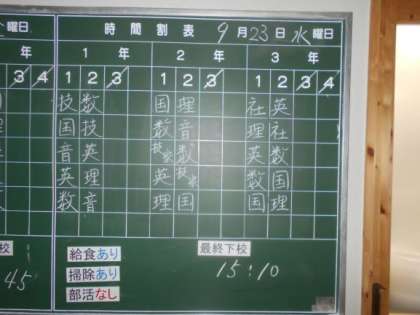 曜日 時間割表 9月23日 水曜日
年 1年 2年 3年
3 4 1 2 3 1 2 3 1 2 3 4
技 数 国 理 社 英
国 技 数 音 理 社
音 英 技家 数 英 数
英 理 英 技家 数 国
数 音 理 国 国 理
校 給食あり 最終下校
45 掃除あり 15:10
部活なし